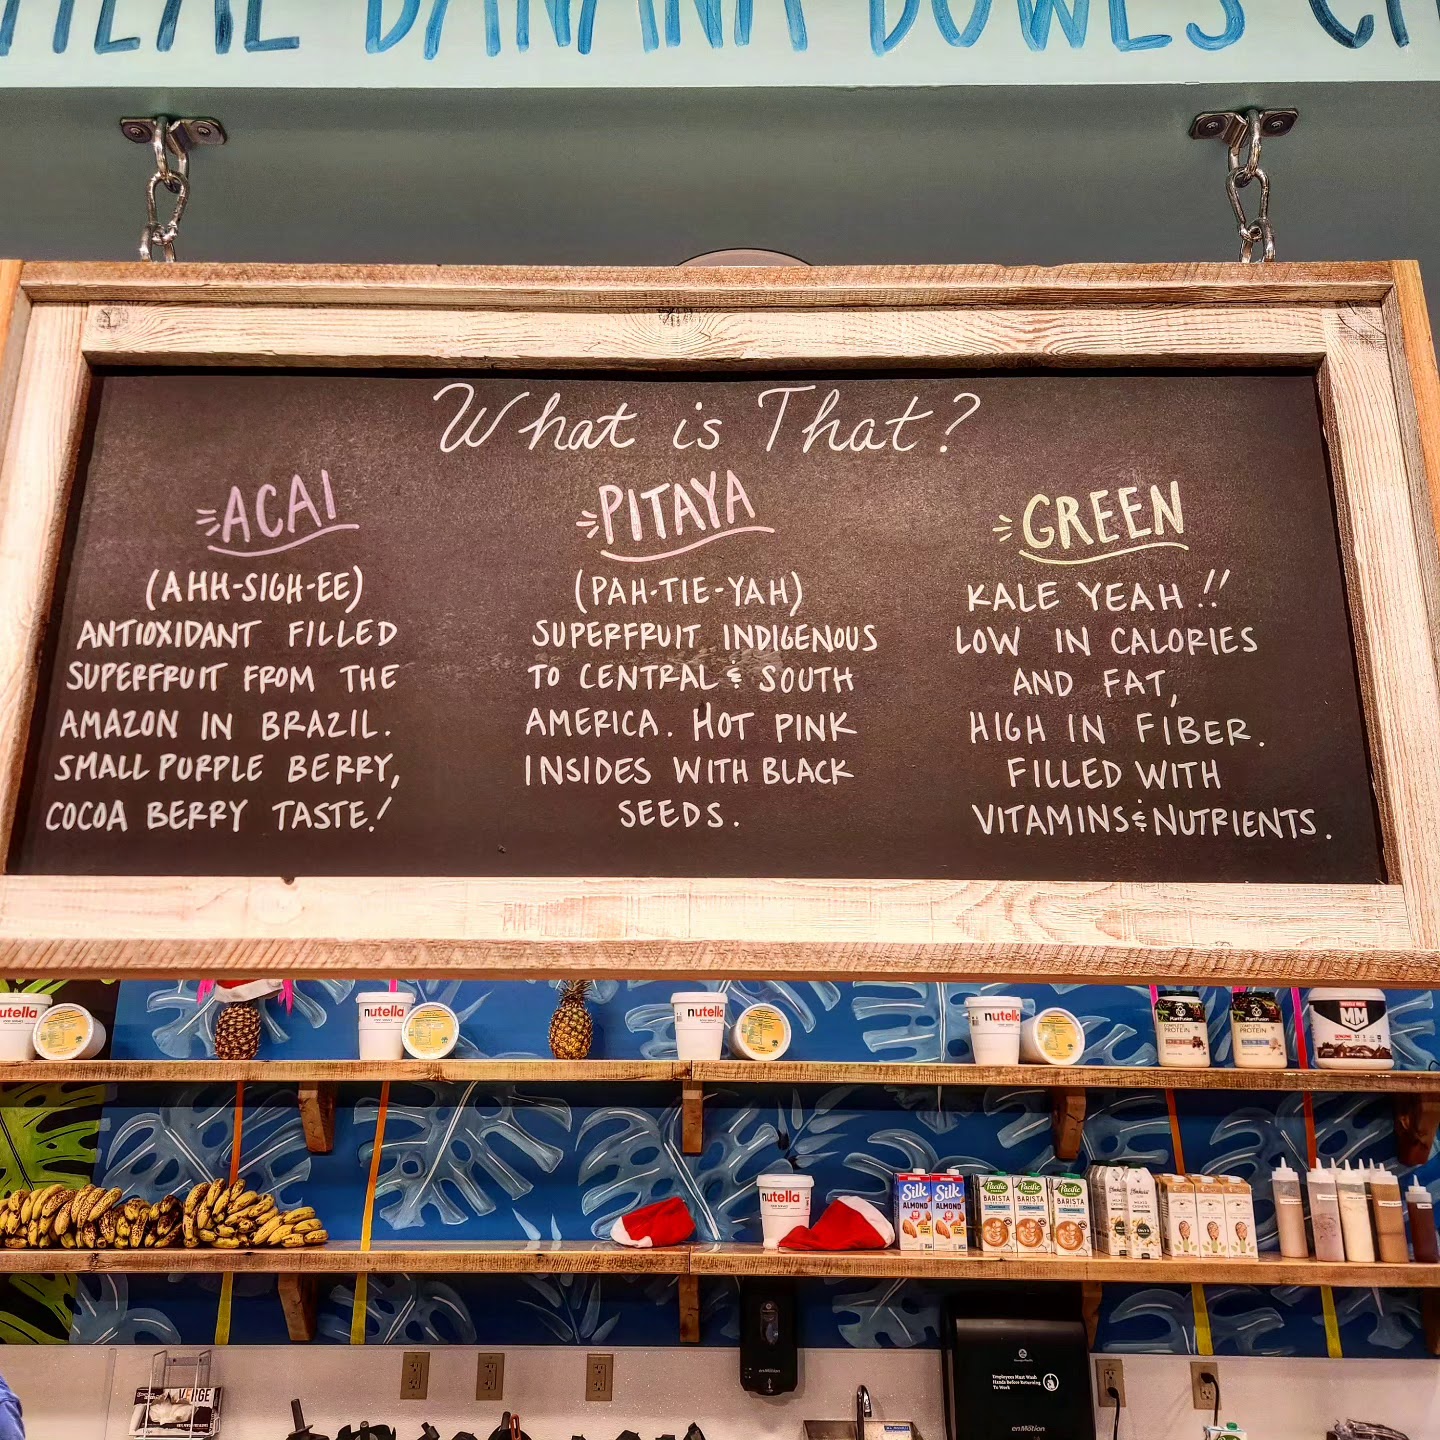 BANANA BOWLS
What is That?
ACAI
(AHH-SIGH-EE)
ANTIOXIDANT FILLED
SUPERFRUIT FROM THE
AMAZON IN BRAZIL.
SMALL PURPLE BERRY,
COCOA BERRY TASTE!
PITAYA
(PAH-TIE-YAH)
SUPERFRUIT INDIGENOUS
TO CENTRAL & SOUTH
AMERICA. HOT PINK
INSIDES WITH BLACK
SEEDS.
GREEN
KALE YEAH!!
LOW IN CALORIES
AND FAT,
HIGH IN FIBER.
FILLED WITH
VITAMINS & NUTRIENTS.
nutella
nutella
nutella
nutella
PlantFusion
COMPLETE
PROTEIN
PlantFusion
COMPLETE
PROTEIN
MUSCLE MILK
MM
nutella
Silk
ALMOND
Silk
ALMOND
Pacific
BARISTA
Pacific
BARISTA
Pacific
BARISTA
Employees Must Wash
Hands Before Returning
To Work
enMotion
enMotion